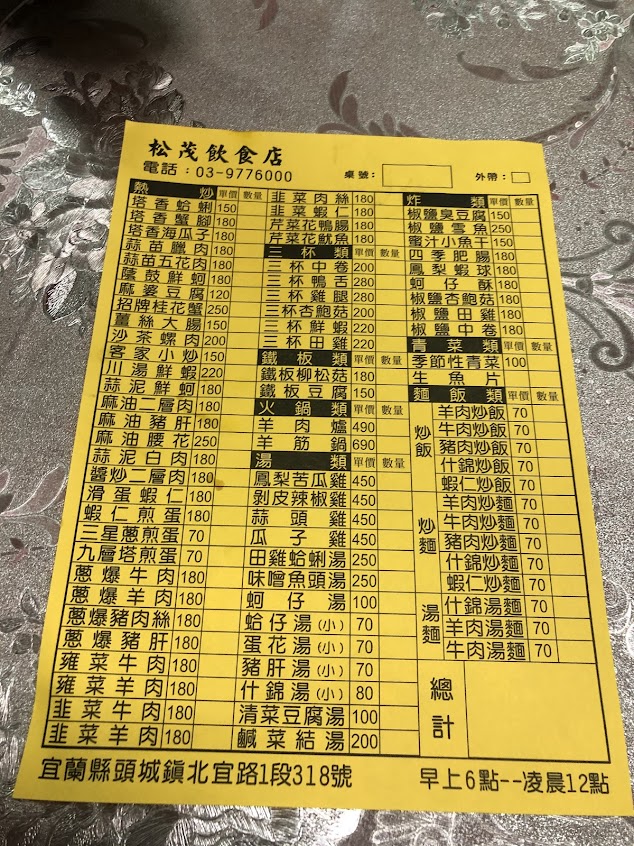 松茂飲食店
電話：03-9776000
桌號：
外帶：
熱炒 單價 數量
塔香蛤蜊 150
塔香蟹腳 190
塔香海瓜子 180
蒜苗臘肉 180
蒜苗五花肉 180
蔭鼓鮮蚵 180
麻婆豆腐 120
招牌桂花蟹 250
薑絲大腸 150
沙茶螺肉 200
客家小炒 150
川湯鮮蝦 220
蒜泥鮮蚵 180
麻油二層肉 180
麻油豬肝 180
麻油腰花 250
蒜泥白肉 180
醬炒二層肉 180
滑蛋蝦仁 180
蝦仁煎蛋 180
三星蔥煎蛋 70
九層塔煎蛋 70
蔥爆牛肉 180
蔥爆羊肉 180
蔥爆豬肉絲 180
蔥爆豬肝 180
雍菜牛肉 180
雍菜羊肉 180
韭菜牛肉 180
韭菜羊肉 180
韭菜肉絲 180
韭菜蝦仁 180
芹菜花鴨腸 180
芹菜花魷魚 180
三杯類 單價 數量
三杯中卷 200
三杯鴨舌 280
三杯雞腿 280
三杯杏鮑菇 200
三杯鮮蝦 220
三杯田雞 220
鐵板類 單價 數量
鐵板柳松菇 180
鐵板豆腐 150
火鍋類 單價 數量
羊肉爐 490
羊筋鍋 690
湯類 單價 數量
鳳梨苦瓜雞 450
剝皮辣椒雞 450
蒜頭雞 450
瓜子雞 450
田雞蛤蜊湯 250
味噌魚頭湯 250
蚵仔湯 100
蛤仔湯(小) 70
蛋花湯(小) 70
豬肝湯(小) 70
什錦湯(小) 80
清菜豆腐湯 100
鹹菜結湯 200
炸類 單價 數量
椒鹽臭豆腐 150
椒鹽雪魚 250
蜜汁小魚干 150
四季肥腸 180
鳳梨蝦球 180
蚵仔酥 180
椒鹽杏鮑菇 180
椒鹽田雞 180
椒鹽中卷 180
青菜類 單價 數量
季節性青菜 100
生魚片
麵飯類 單價 數量
炒飯
羊肉炒飯 70
牛肉炒飯 70
豬肉炒飯 70
什錦炒飯 70
蝦仁炒飯 70
炒麵
羊肉炒麵 70
牛肉炒麵 70
豬肉炒麵 70
什錦炒麵 70
蝦仁炒麵 70
湯麵
什錦湯麵 70
羊肉湯麵 70
牛肉湯麵 70
總計
宜蘭縣頭城鎮北宜路1段318號
早上6點--凌晨12點